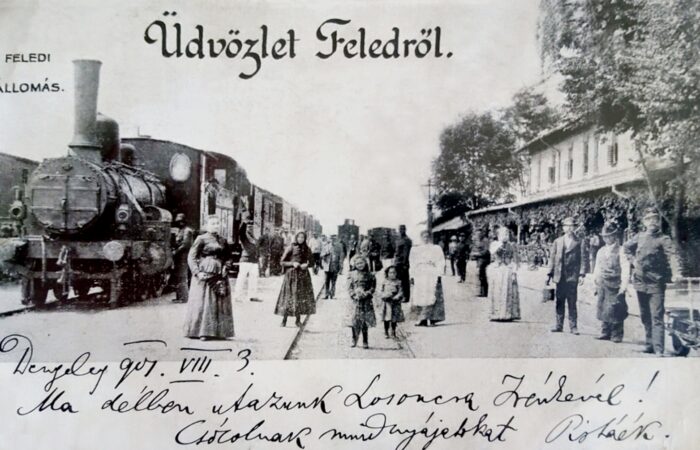 Üdvözlet Feledről.
FELEDI
ÁLLOMÁS.
907. VIII. 3.
Ma délben utazunk Losoncra Irénkével!
Csókolnak mindnyájatokat